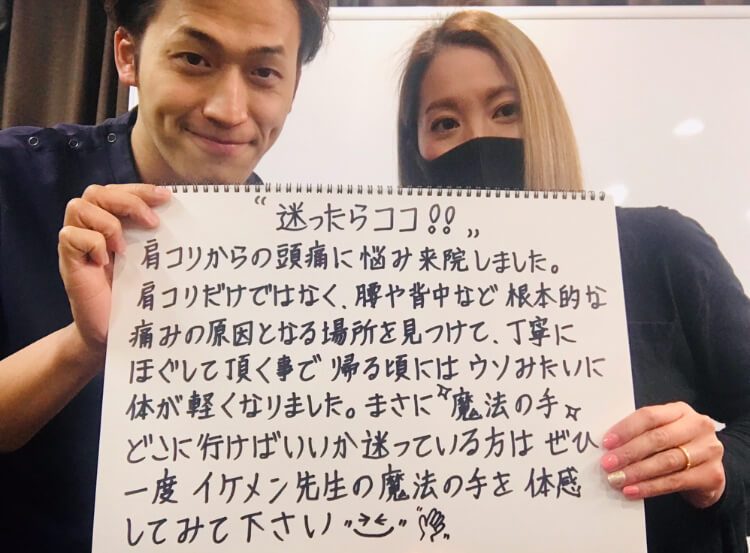 “迷ったらココ!!„
肩コリからの頭痛に悩み来院しました。
肩コリだけではなく、腰や背中など根本的な
痛みの原因となる場所を見つけて、丁寧に
ほぐして頂く事で帰る頃にはウソみたいに
体が軽くなりました。まさに魔法の手
どこに行けばいいか迷っている方はぜひ
一度イケメン先生の魔法の手を体感
してみて下さい